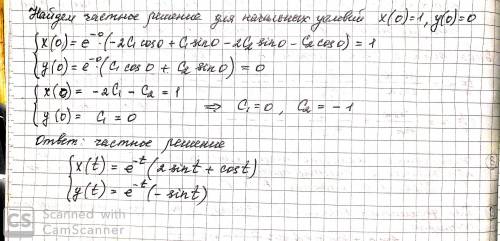 Найдем частное решение для начальных условий x(0)=1, y(0)=0
x(0) = e^{-0}·(-2C₁cos0 + C₁sin0 - 2C₂sin0 - C₂cos0) = 1
y(0) = e^{-0}(C₁cos0 + C₂sin0) = 0
x(0) = -2C₁ - C₂ = 1
⇒ C₁=0, C₂=-1
y(0) = C₁ = 0
Ответ: частное решение
x(t) = e^{-t}(2sint + cost)
y(t) = e^{-t}(-sint)
CS Scanned with
CamScanner